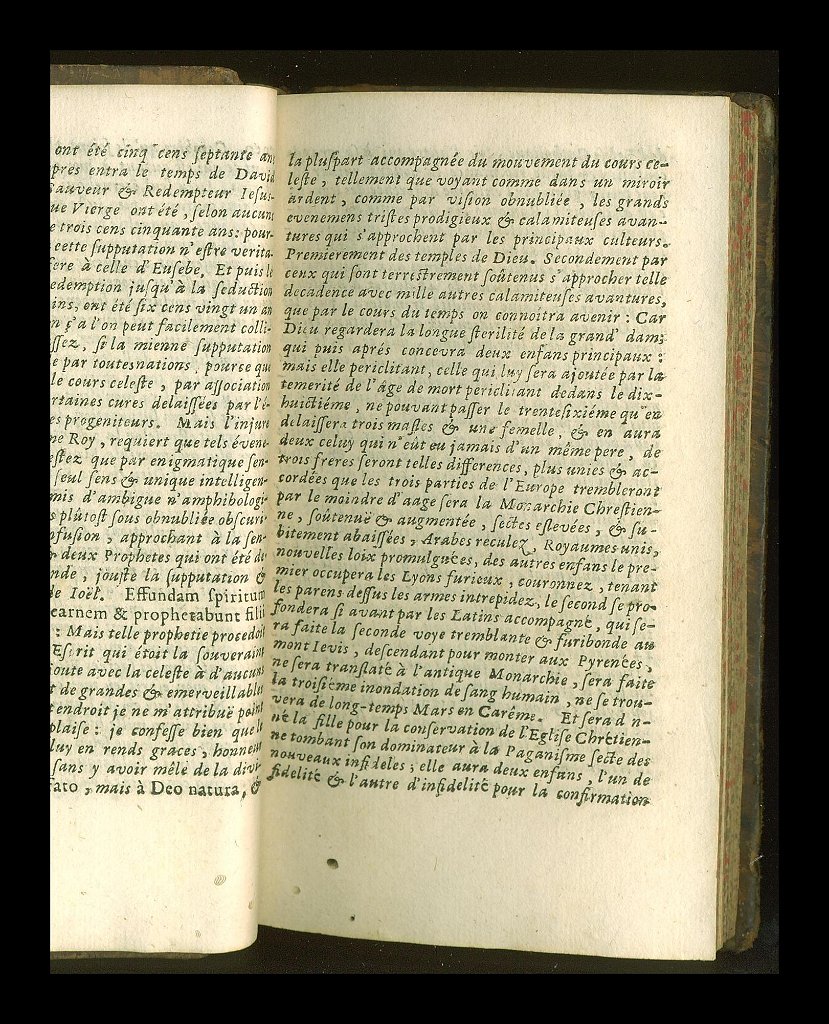 ont été cinq cens ſeptante an
pres entra le temps de David
Sauveur & Redempteur Ieſus-
ue Vierge ont été, ſelon aucuns
e trois cens cinquante ans: pour-
cette ſupputation n'eſtre verita-
fere à celle d'Euſebe. Et puis le
edemption juſqu'à la ſeduction
ins, ont été ſix cens vingt un an
n ç'a l'on peut facilement colli-
ſſez, ſi la mienne ſupputation
e par toutes nations, pource que
le cours celeſte, par aſſociation
rtaines cures delaiſſées par l'é-
es progeniteurs. Mais l'injure
ne Roy, requiert que tels évene-
eſtez que par enigmatique ſen-
ſeul ſens & unique intelligen-
mis d'ambigue n'amphibologi-
s plûtoſt ſous obnubliée obſcuri-
fuſion, approchant à la ſen-
deux Prophetes qui ont été de-
nde, jouſte la ſupputation &
de Ioël. Effundam ſpiritum
carnem & prophetabunt filii
: Mais telle prophetie procedoit
Eſprit qui étoit la ſouveraine
joute avec la celeſte à d'aucuns
t de grandes & emerveillables
endroit je ne m'attribuë point
plaiſe: je confeſſe bien que le
luy en rends graces, honneur
ſans y avoir mêlé de la divi-
fato, mais à Deo natura, &
la pluſpart accompagnée du mouvement du cours ce-
leſte, tellement que voyant comme dans un miroir
ardent, comme par viſion obnubliée, les grands
evenemens triſtes prodigieux & calamiteuſes avan-
tures qui s'approchent par les principaux culteurs.
Premierement des temples de Dieu. Secondement par
ceux qui ſont terreſtrement ſoûtenus s'approcher telle
decadence avec mille autres calamiteuſes avantures,
que par le cours du temps on connoitra avenir: Car
Dieu regardera la longue ſterilité de la grand' dame
qui puis aprés concevra deux enfans principaux:
mais elle periclitant, celle qui luy ſera ajoutée par la
temerité de l'âge de mort periclitant dedans le dix-
huictiéme, ne pouvant paſſer le trenteſixiéme qu'en
delaiſſera trois maſles & une femelle, & en aura
deux celuy qui n'eût eu jamais d'un même pere, de
trois freres ſeront telles differences, plus unies & ac-
cordées que les trois parties de l'Europe trembleront
par le moindre d'aage ſera la Monarchie Chreſtien-
ne, ſoûtenuë & augmentée, ſectes eſlevées, & ſu-
bitement abaiſſées, Arabes reculez, Royaumes unis,
nouvelles loix promulguées, des autres enfans le pre-
mier occupera les Lyons furieux, couronnez, tenant
les parens deſſus les armes intrepidez, le ſecond ſe pro-
fondera ſi avant par les Latins accompagné, qui ſe-
ra faite la ſeconde voye tremblante & furibonde au
mont Ievis, deſcendant pour monter aux Pyrenées,
ne ſera tranſlaté à l'antique Monarchie, ſera faite
la troiſiéme inondation de ſang humain, ne ſe trou-
vera de long-temps Mars en Carême. Et ſera d n-
né la fille pour la conſervation de l'Egliſe Chrétien-
ne tombant ſon dominateur à la Paganiſme ſecte des
nouveaux infideles; elle aura deux enfans, l'un de
fidelité & l'autre d'infidelité pour la confirmation